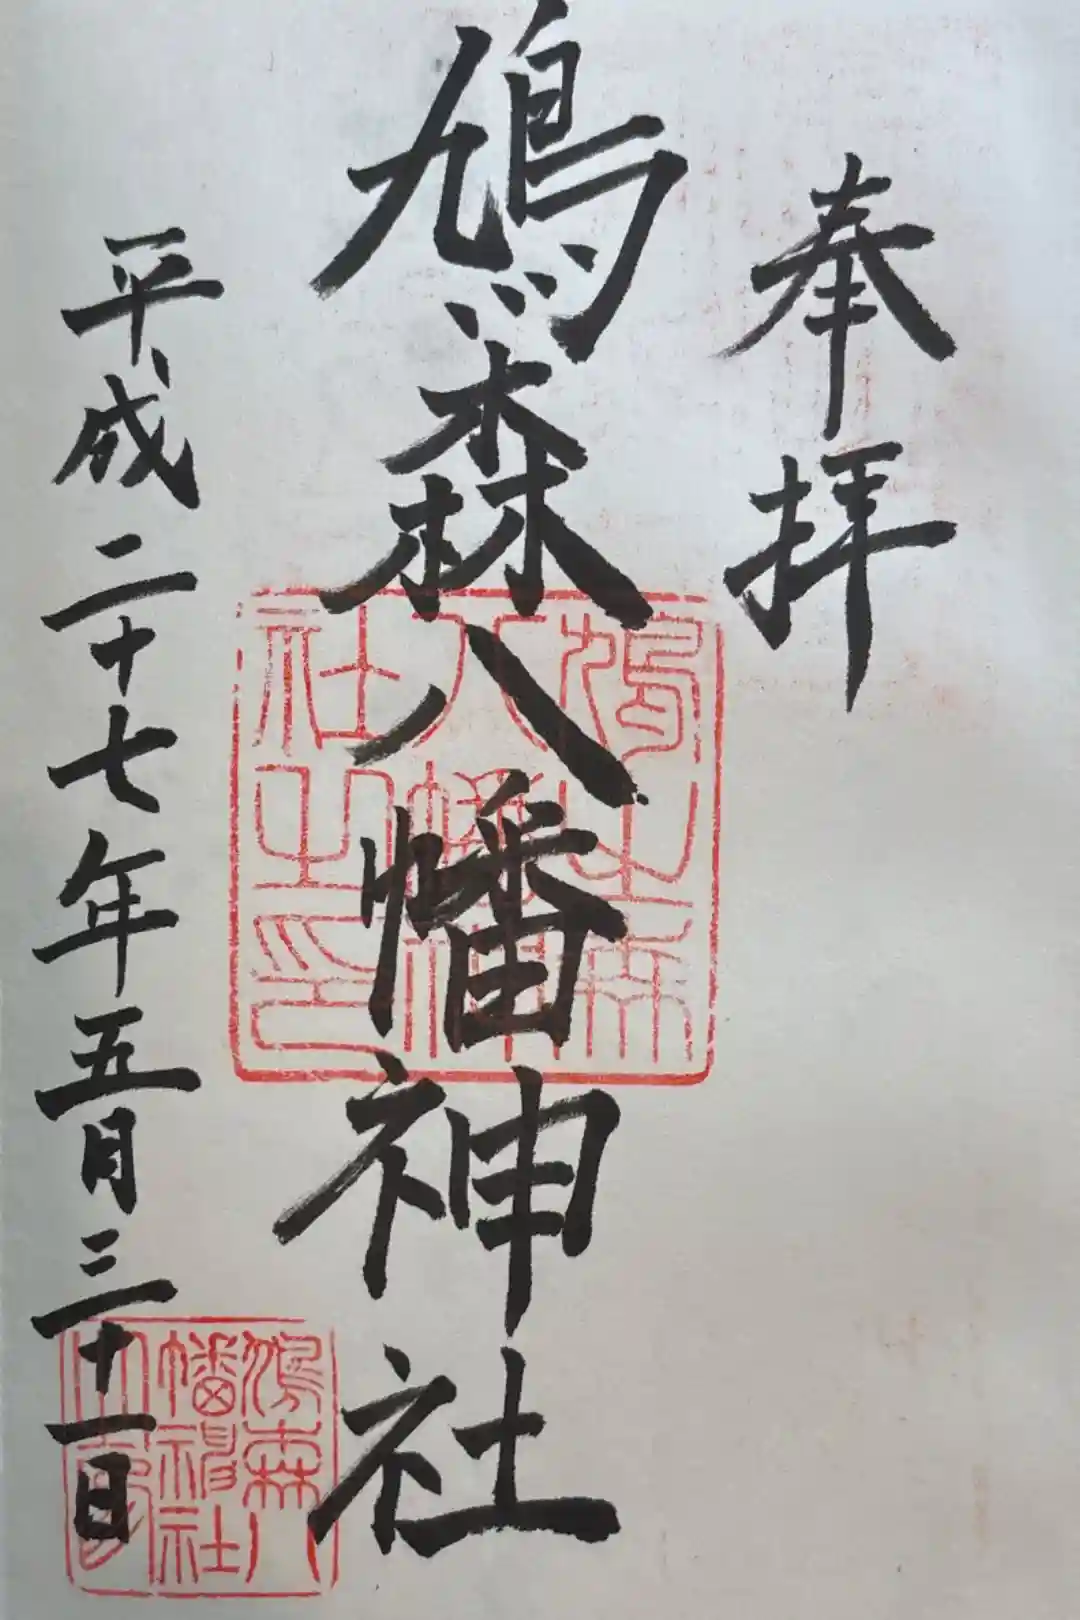 奉拝
鳩森八幡神社
平成二十七年五月三十一日
鳩之森
八幡神
社之印
鳩森八
幡神社